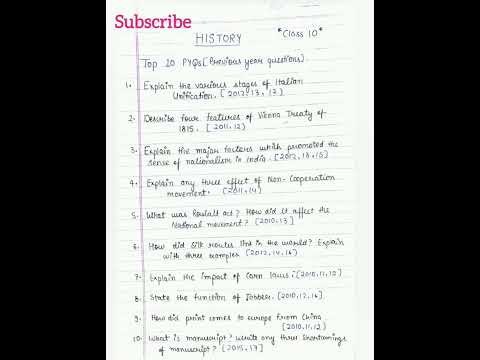 Subscribe
HISTORY
*Class 10*
Top 10 PYQs [Previous year questions].
1. Explain the various stages of Italian
Unification. [2012, 13, 17]
2. Describe four features of Vienna Treaty of
1815. [2011, 12]
3. Explain the major factors which promoted the
sense of nationalism in India. [2012, 13, 15]
4. Explain any three effect of Non-Cooperation
movement. [2011, 14]
5. What was Roulatt act? How did it affect the
National movement? [2010, 13]
6. How did Silk routes link in the world? Explain
with three examples. [2012, 14, 16]
7. Explain the impact of corn laws. [2010, 11, 12]
8. State the function of Jobber. [2010, 12, 16]
9. How did print comes to europe from China
[2010, 11, 12]
10. What is manuscript? write any three shortcomings
of manuscript? [2015, 17]